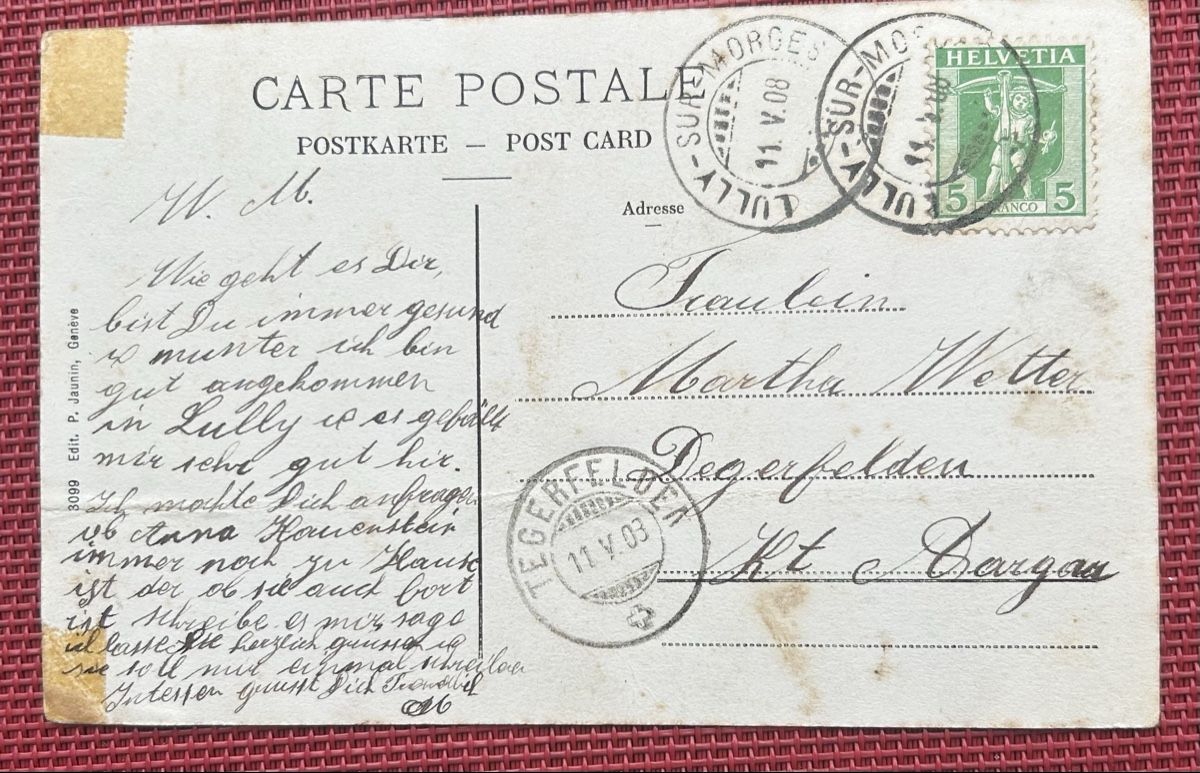 CARTE POSTALE
POSTKARTE — POST CARD
Adresse
LULLY-SUR-MORGES
11.V.08
LULLY-SUR-MOR
11.V.08
HELVETIA
5 FRANCO 5
3099 Edit. P. Jaunin, Genève
W. M.
Wie geht es Dir,
bist Du immer gesund
u munter ich bin
gut angekommen
in Lully u es gefällt
mir sehr gut hir.
Ich möchte Dich anfragen
ob Anna Hauenstein
immer noch zu Hause
ist der ob sie auch fort
ist schreibe es mir sage
ich lasse Sie herzlich grüssen u
sie soll mir einmal schreiben
Intessen grüsst Dich
M
Fraulein
Martha Wetter
Degerfelden
Kt Aargau
TEGERFELDEN
11.V.08